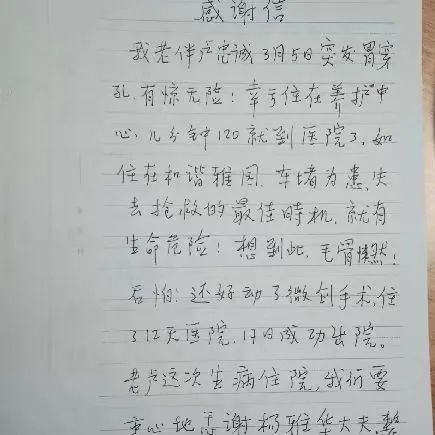 感谢信
我老伴卢忠诚3月5日突发胃穿
孔,有惊无险!幸亏住在养护中
心,几分钟120就到医院了,如
住在和谐雅园,车堵为患,失
去抢救的最佳時机,就有
生命危险!想到此,毛骨悚然!
后怕!还好动了微创手术,住
了12天医院,17日成功出院。
老卢这次生病住院,我们要
衷心地感谢杨雅华大夫,整